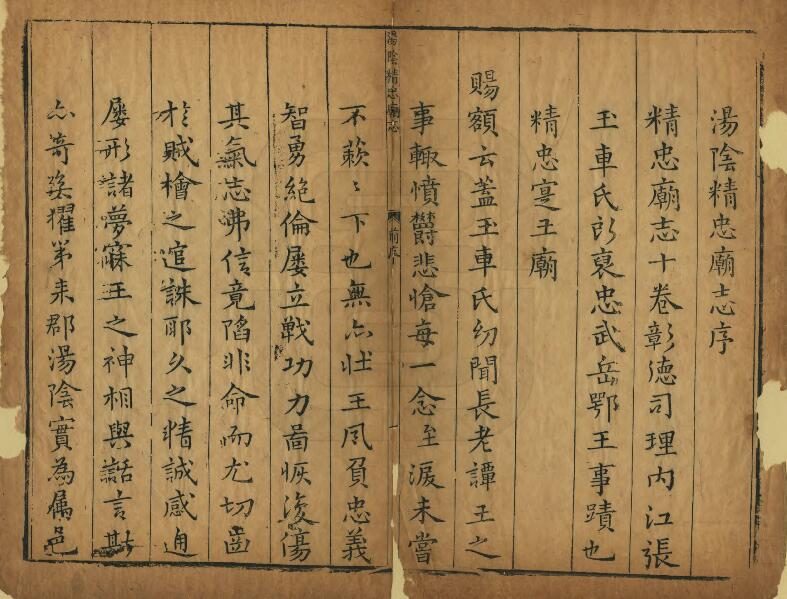 湯陰精忠廟志序
精忠廟志十卷彰德司理内江張
玉車氏所裒忠武岳鄂王事蹟也
精忠寔王廟
賜額云蓋玉車氏幼聞長老譚王之
事輙憤欝悲愴每一念至淚未嘗
湯陰精忠廟志
前序
不蔌〻下也無亦壯王夙負忠義
智勇絶倫屡立戰功力啚恢復傷
其氣志沸信竟陷非命而尤切齒
於賊檜之逭誅耶久之精誠感通
屡形諸夢寐王之神相與話言斯
亦奇矣擢第来郡湯陰實為属邑